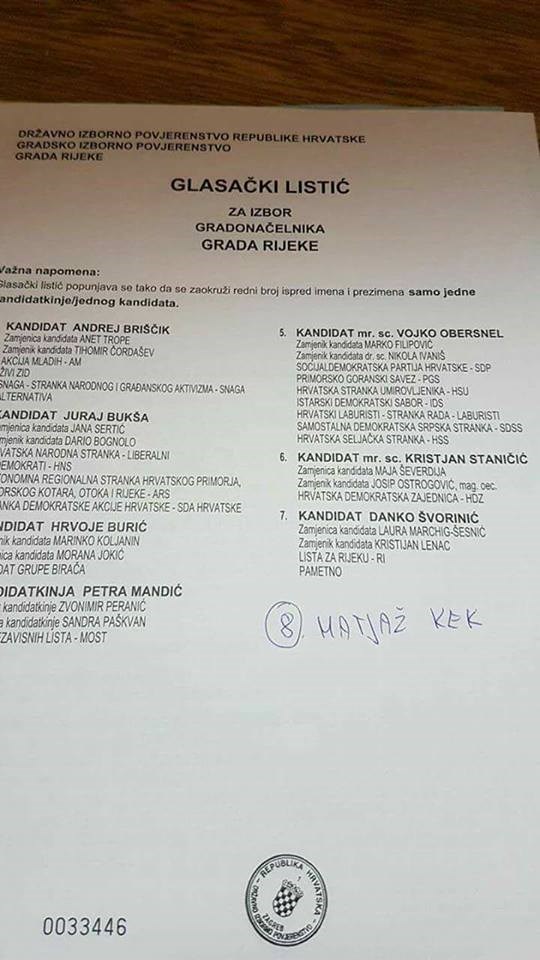 DRŽAVNO IZBORNO POVJERENSTVO REPUBLIKE HRVATSKE
GRADSKO IZBORNO POVJERENSTVO
GRADA RIJEKE
GLASAČKI LISTIĆ
ZA IZBOR
GRADONAČELNIKA
GRADA RIJEKE
Važna napomena:
Glasački listić popunjava se tako da se zaokruži redni broj ispred imena i prezimena samo jedne
andidatkinje/jednog kandidata.
KANDIDAT ANDREJ BRIŠČIK
Zamjenica kandidata ANET TROPE
Zamjenik kandidata TIHOMIR ČORDAŠEV
AKCIJA MLADIH - AM
ŽIVI ZID
SNAGA - STRANKA NARODNOG I GRAĐANSKOG AKTIVIZMA - SNAGA
ALTERNATIVA
KANDIDAT JURAJ BUKŠA
amjenica kandidata JANA SERTIĆ
mjenik kandidata DARIO BOGNOLO
VATSKA NARODNA STRANKA - LIBERALNI
DEMOKRATI - HNS
ONOMNA REGIONALNA STRANKA HRVATSKOG PRIMORJA,
ORSKOG KOTARA, OTOKA I RIJEKE - ARS
ANKA DEMOKRATSKE AKCIJE HRVATSKE - SDA HRVATSKE
NDIDAT HRVOJE BURIĆ
nik kandidata MARINKO KOLJANIN
nica kandidata MORANA JOKIĆ
DAT GRUPE BIRAČA
DIDATKINJA PETRA MANDIĆ
kandidatkinje ZVONIMIR PERANIĆ
a kandidatkinje SANDRA PAŠKVAN
EZAVISNIH LISTA - MOST
5. KANDIDAT mr. sc. VOJKO OBERSNEL
Zamjenik kandidata MARKO FILIPOVIĆ
Zamjenik kandidata dr. sc. NIKOLA IVANIŠ
SOCIJALDEMOKRATSKA PARTIJA HRVATSKE - SDP
PRIMORSKO GORANSKI SAVEZ - PGS
HRVATSKA STRANKA UMIROVLJENIKA - HSU
ISTARSKI DEMOKRATSKI SABOR - IDS
HRVATSKI LABURISTI - STRANKA RADA - LABURISTI
SAMOSTALNA DEMOKRATSKA SRPSKA STRANKA - SDSS
HRVATSKA SELJAČKA STRANKA - HSS
6. KANDIDAT mr. sc. KRISTJAN STANIČIĆ
Zamjenica kandidata MAJA ŠEVERDIJA
Zamjenik kandidata JOSIP OSTROGOVIĆ, mag. oec.
HRVATSKA DEMOKRATSKA ZAJEDNICA - HDZ
7. KANDIDAT DANKO ŠVORINIĆ
Zamjenica kandidata LAURA MARCHIG-ŠESNIĆ
Zamjenik kandidata KRISTIJAN LENAC
LISTA ZA RIJEKU - RI
PAMETNO
8. MATJAŽ KEK
REPUBLIKA HRVATSKA
DRŽAVNO IZBORNO POVJERENSTVO
ZAGREB
0033446